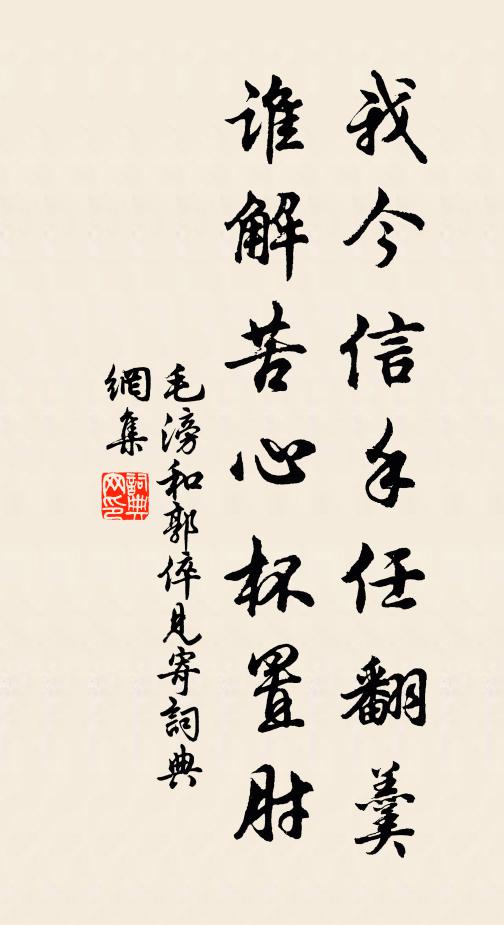 我今信手任翻羹
谁解苦心杯置肘
毛滂和郭倅见寄詞典
網集
詞典
网印